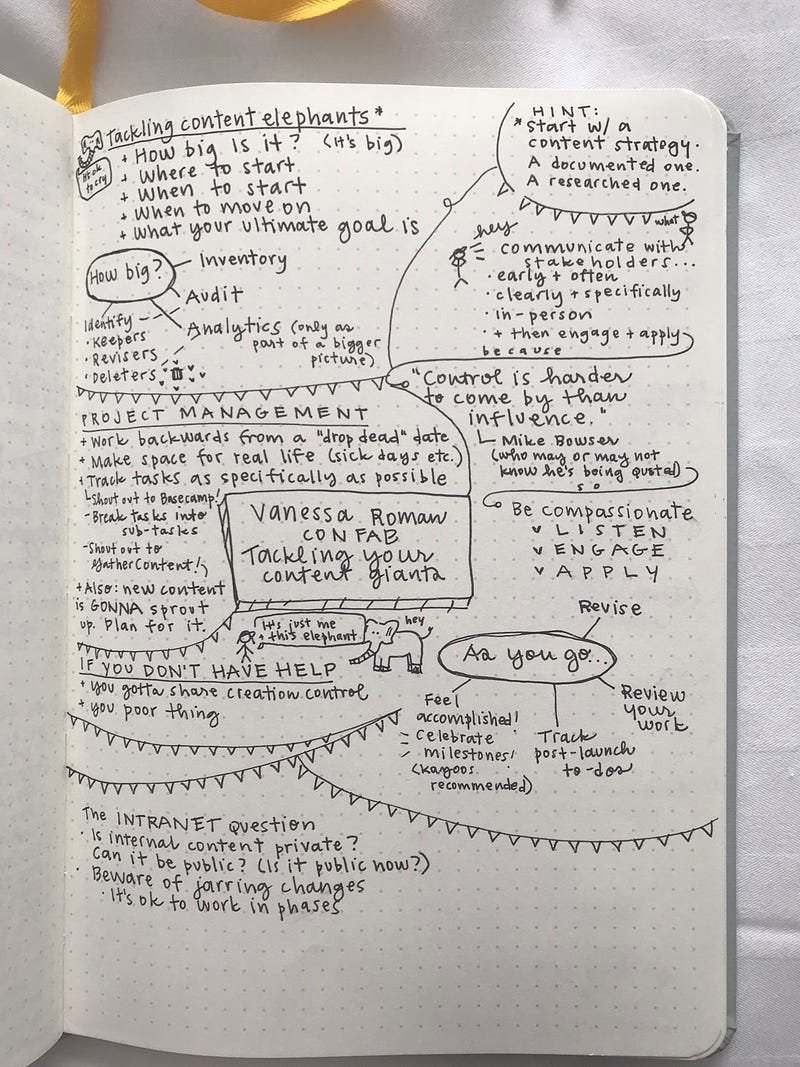 Tackling content elephants*
It's ok
to cry
+ How big is it? (it's big)
+ Where to start
+ When to start
+ When to move on
+ What your ultimate goal is
HINT:
*start w/ a
content strategy.
A documented one.
A researched one.
How big?
Inventory
Audit
Analytics (only as
part of a bigger
picture)
Identify
· Keepers
· Revisers
· Deleters
hey
what
communicate with
stakeholders...
· early + often
· clearly + specifically
· in-person
· + then engage + apply
because
"Control is harder
to come by than
influence."
Mike Bowser
(who may or may not
know he's being quoted)
so
Be compassionate
v LISTEN
v ENGAGE
v APPLY
PROJECT MANAGEMENT
+ Work backwards from a "drop dead" date
+ Make space for real life (sick days etc.)
+ Track tasks as specifically as possible
Shout out to Basecamp!
- Break tasks into
sub-tasks
- Shout out to
GatherContent!
+ Also: new content
is GONNA sprout
up. Plan for it.
Vanessa Roman
CONFAB
Tackling your
content giants
It's just me
+ this elephant
hey
IF YOU DON'T HAVE HELP
+ you gotta share creation control
+ you poor thing
As you go...
Revise
Review
your
work
Track
post-launch
to-dos
Feel
accomplished!
Celebrate
milestones!
(kazoos
recommended)
The INTRANET Question
· Is internal content private?
Can it be public? (Is it public now?)
· Beware of jarring changes
· It's ok to work in phases